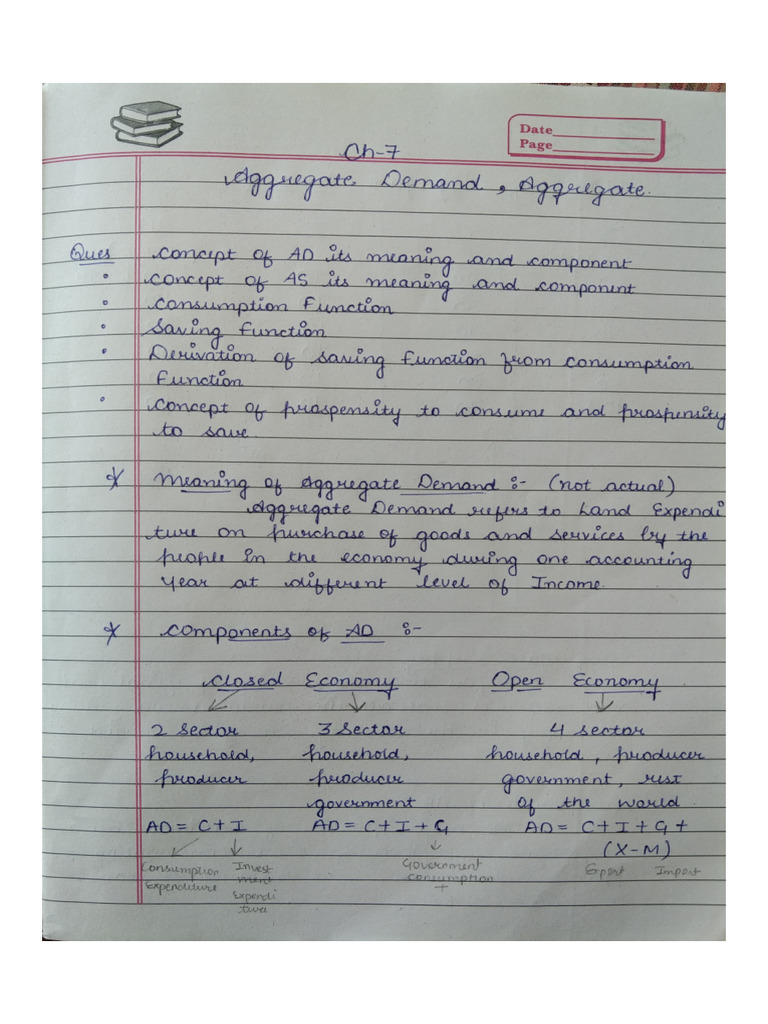 Date
Page
Ch-7
Aggregate Demand, Aggregate.
Ques Concept of AD its meaning and component
• Concept of AS its meaning and component
• Consumption Function
• Saving Function
• Derivation of saving function from consumption
Function
• Concept of prospensity to consume and prospensity
to save.
* Meaning of Aggregate Demand :- (not actual)
Aggregate Demand refers to Land Expendi
ture on purchase of goods and services by the
people in the economy during one accounting
Year at different level of Income.
* Components of AD :-
Closed Economy Open Economy
2 Sector 3 Sector 4 sector
household, household, household, producer
producer producer government, rest
government of the world
AD = C+I AD = C+I+G AD = C+I+G+
(X-M)
Consumption Invest Government Export Import
Expenditure ment consumption
Expendi +
ture